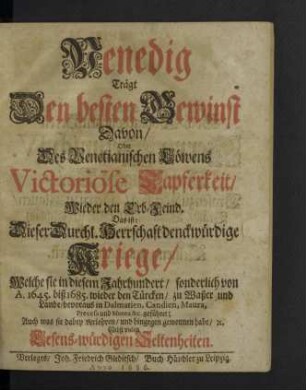 Venedig
Trägt
Den besten Gewinst
Davon/
Oder
Des Venetianischen Löwens
Victoriöse Tapferkeit/
Wieder den Erb-Feind.
Das ist:
Dieser Durchl. Herrschaft denckwürdige
Kriege/
Welche sie in diesem Jahrhundert/ sonderlich von
A. 1645. biß 1685. wieder den Türcken/ zu Waßer und
Lande/ bevoraus in Dalmatien, Candien, Maura,
Prevesa und Morea &c. geführet/
Auch was sie dabey verlohren/ und hingegen gewonnen habe/ &c.
Lesens-würdigen Seltenheiten.
Verlegts/ Joh. Friedrich Gleditsch/ Buch-Händler zu Leipzig.
Anno 1686.